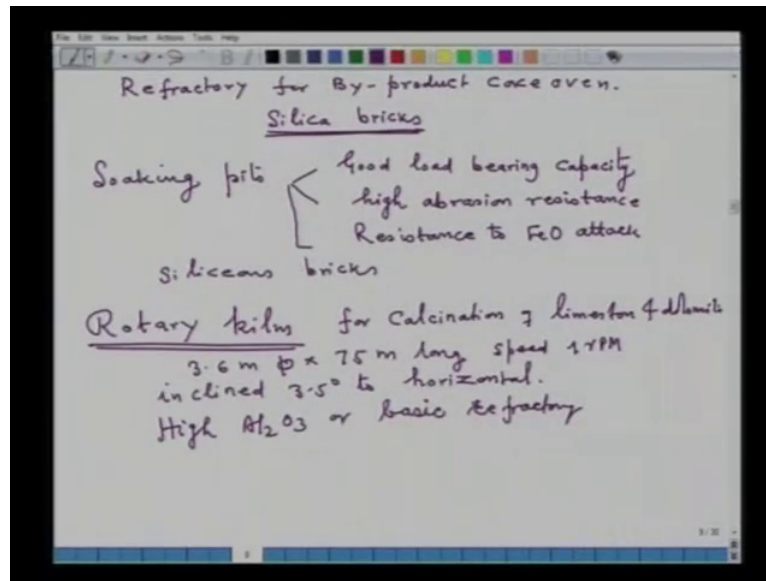 File Edit View Insert Actions Tools Help
Refractory for By-product Coke oven.
Silica bricks
Soaking pits
Good load bearing capacity
high abrasion resistance
Resistance to FeO attack
Siliceous bricks
Rotary kiln for Calcination of limeston & dolomite
3.6 m φ x 75 m long speed 1 rPM
inclined 3.5° to horizontal.
High Al2O3 or basic refractory